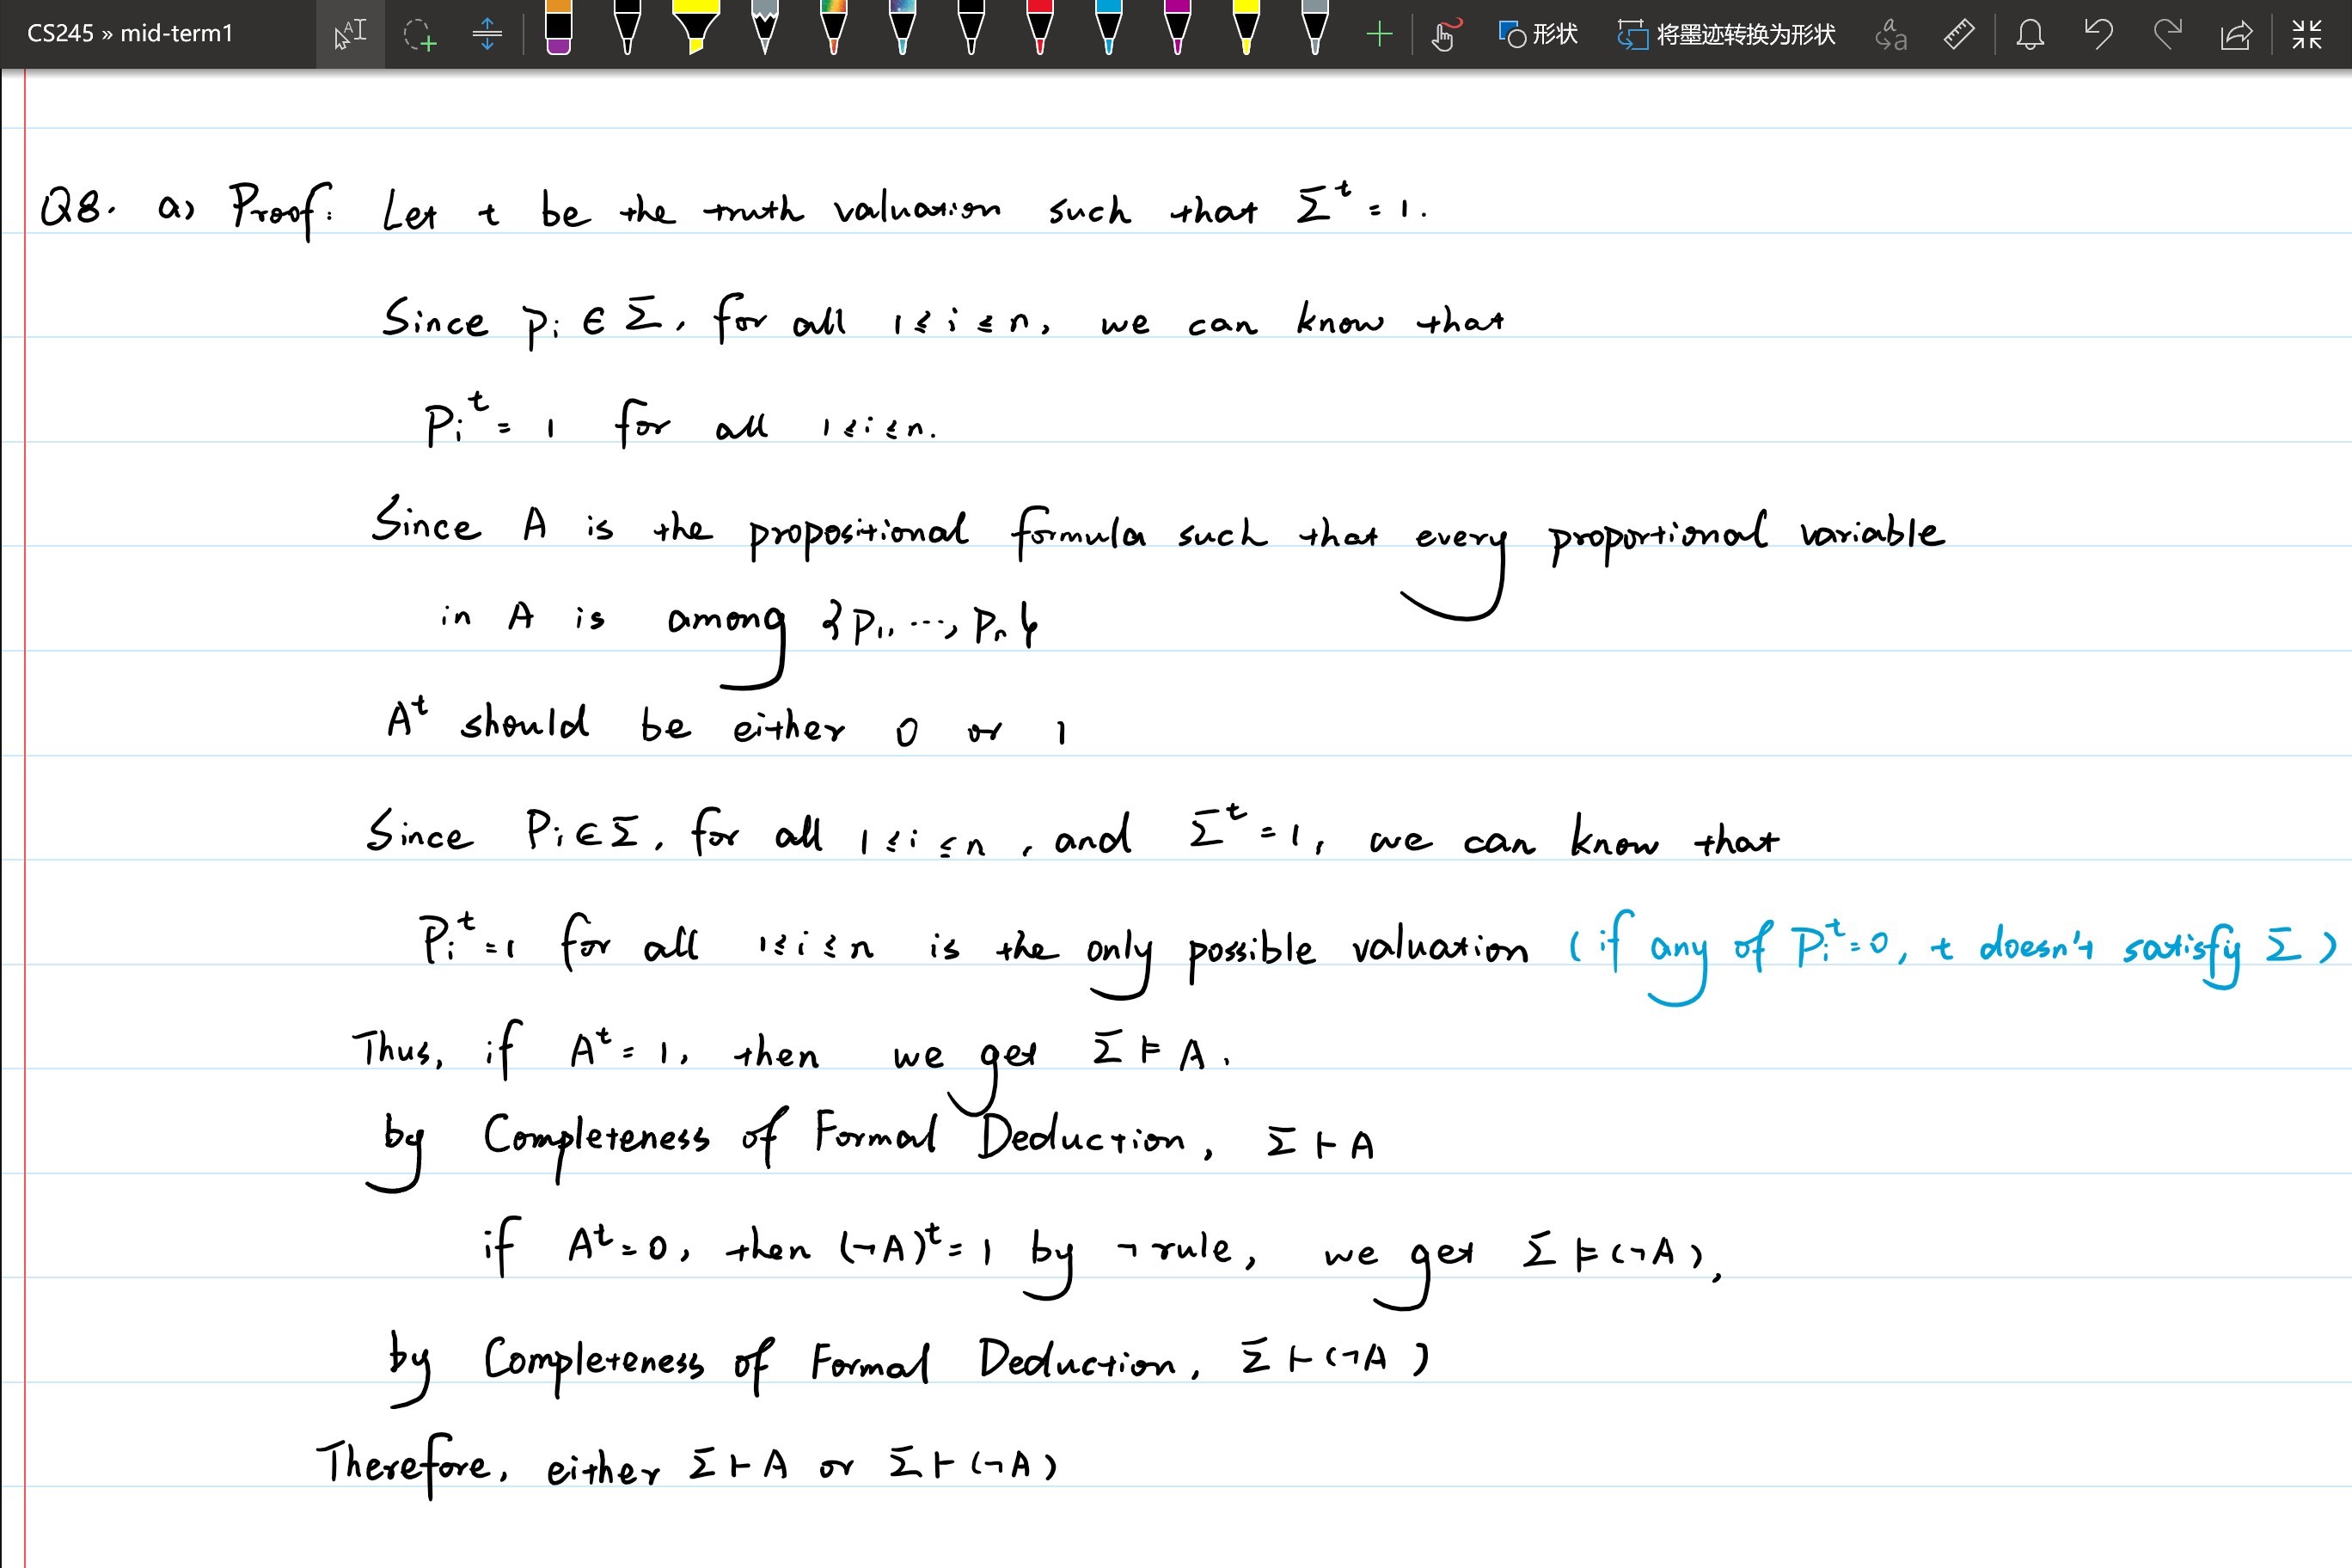 CS245 » mid-term1
形状
将墨迹转换为形状
Q8. a) Proof: Let t be the truth valuation such that Σ^t = 1.
Since p_i ∈ Σ, for all 1≤i≤n, we can know that
P_i^t = 1 for all 1≤i≤n.
Since A is the propositional formula such that every proportional variable
in A is among {P_1, ..., P_n}
A^t should be either 0 or 1
Since P_i∈Σ, for all 1≤i≤n, and Σ^t = 1, we can know that
P_i^t = 1 for all 1≤i≤n is the only possible valuation (if any of P_i^t = 0, t doesn't satisfy Σ)
Thus, if A^t = 1, then we get Σ ⊨ A.
by Completeness of Formal Deduction, Σ ⊢ A
if A^t = 0, then (¬A)^t = 1 by ¬ rule, we get Σ ⊨ (¬A),
by Completeness of Formal Deduction, Σ ⊢ (¬A)
Therefore, either Σ ⊢ A or Σ ⊢ (¬A)